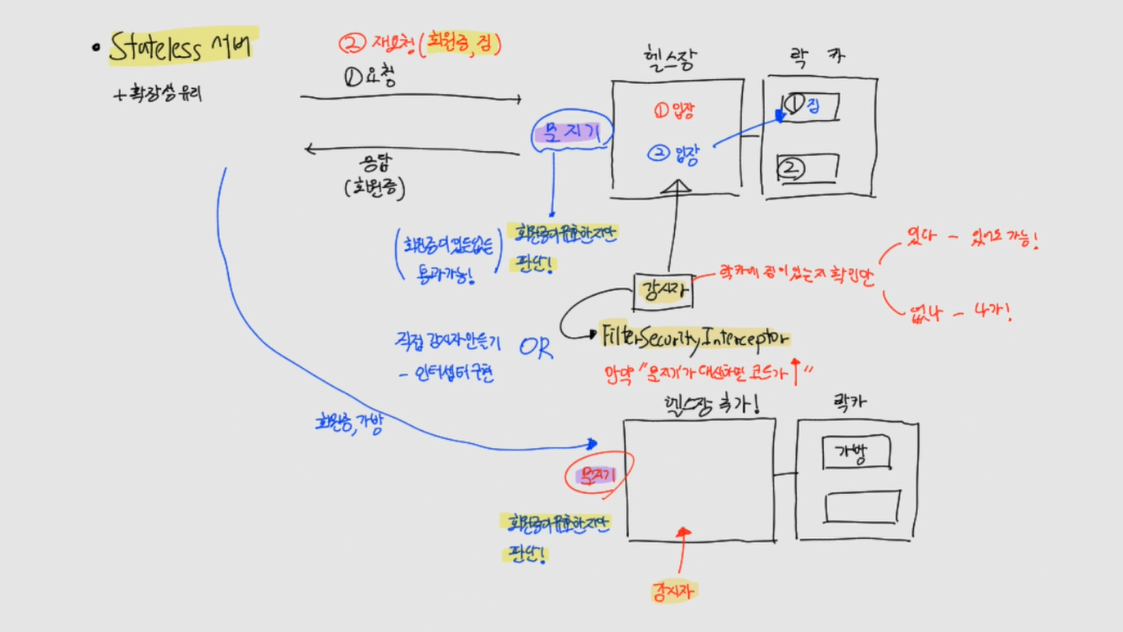 • Stateless 서버
+ 확장성 유리
② 재요청 (회원증, 짐)
① 요청
응답
(회원증)
문지기
헬스장
① 입장
② 입장
락 카
① 짐
②
(회원증이 있든없든
통과가능!)
회원증이 유효한지만
판단!
감시자
락카에 짐이 있는지 확인만
있다 - 있어도 가능!
없나 - 나가!
직접 감시자 만들기
- 인터셉터 구현
OR
FilterSecurityInterceptor
만약 "문지기가 대신하면 코드가 ↑"
회원증, 가방
헬스장 추가!
락카
가방
문지기
회원증이 유효한지만
판단!
감시자